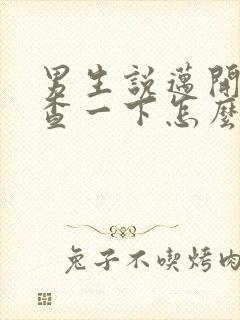 男生說邁開
查一下怎麼
兔子不喫烤肉